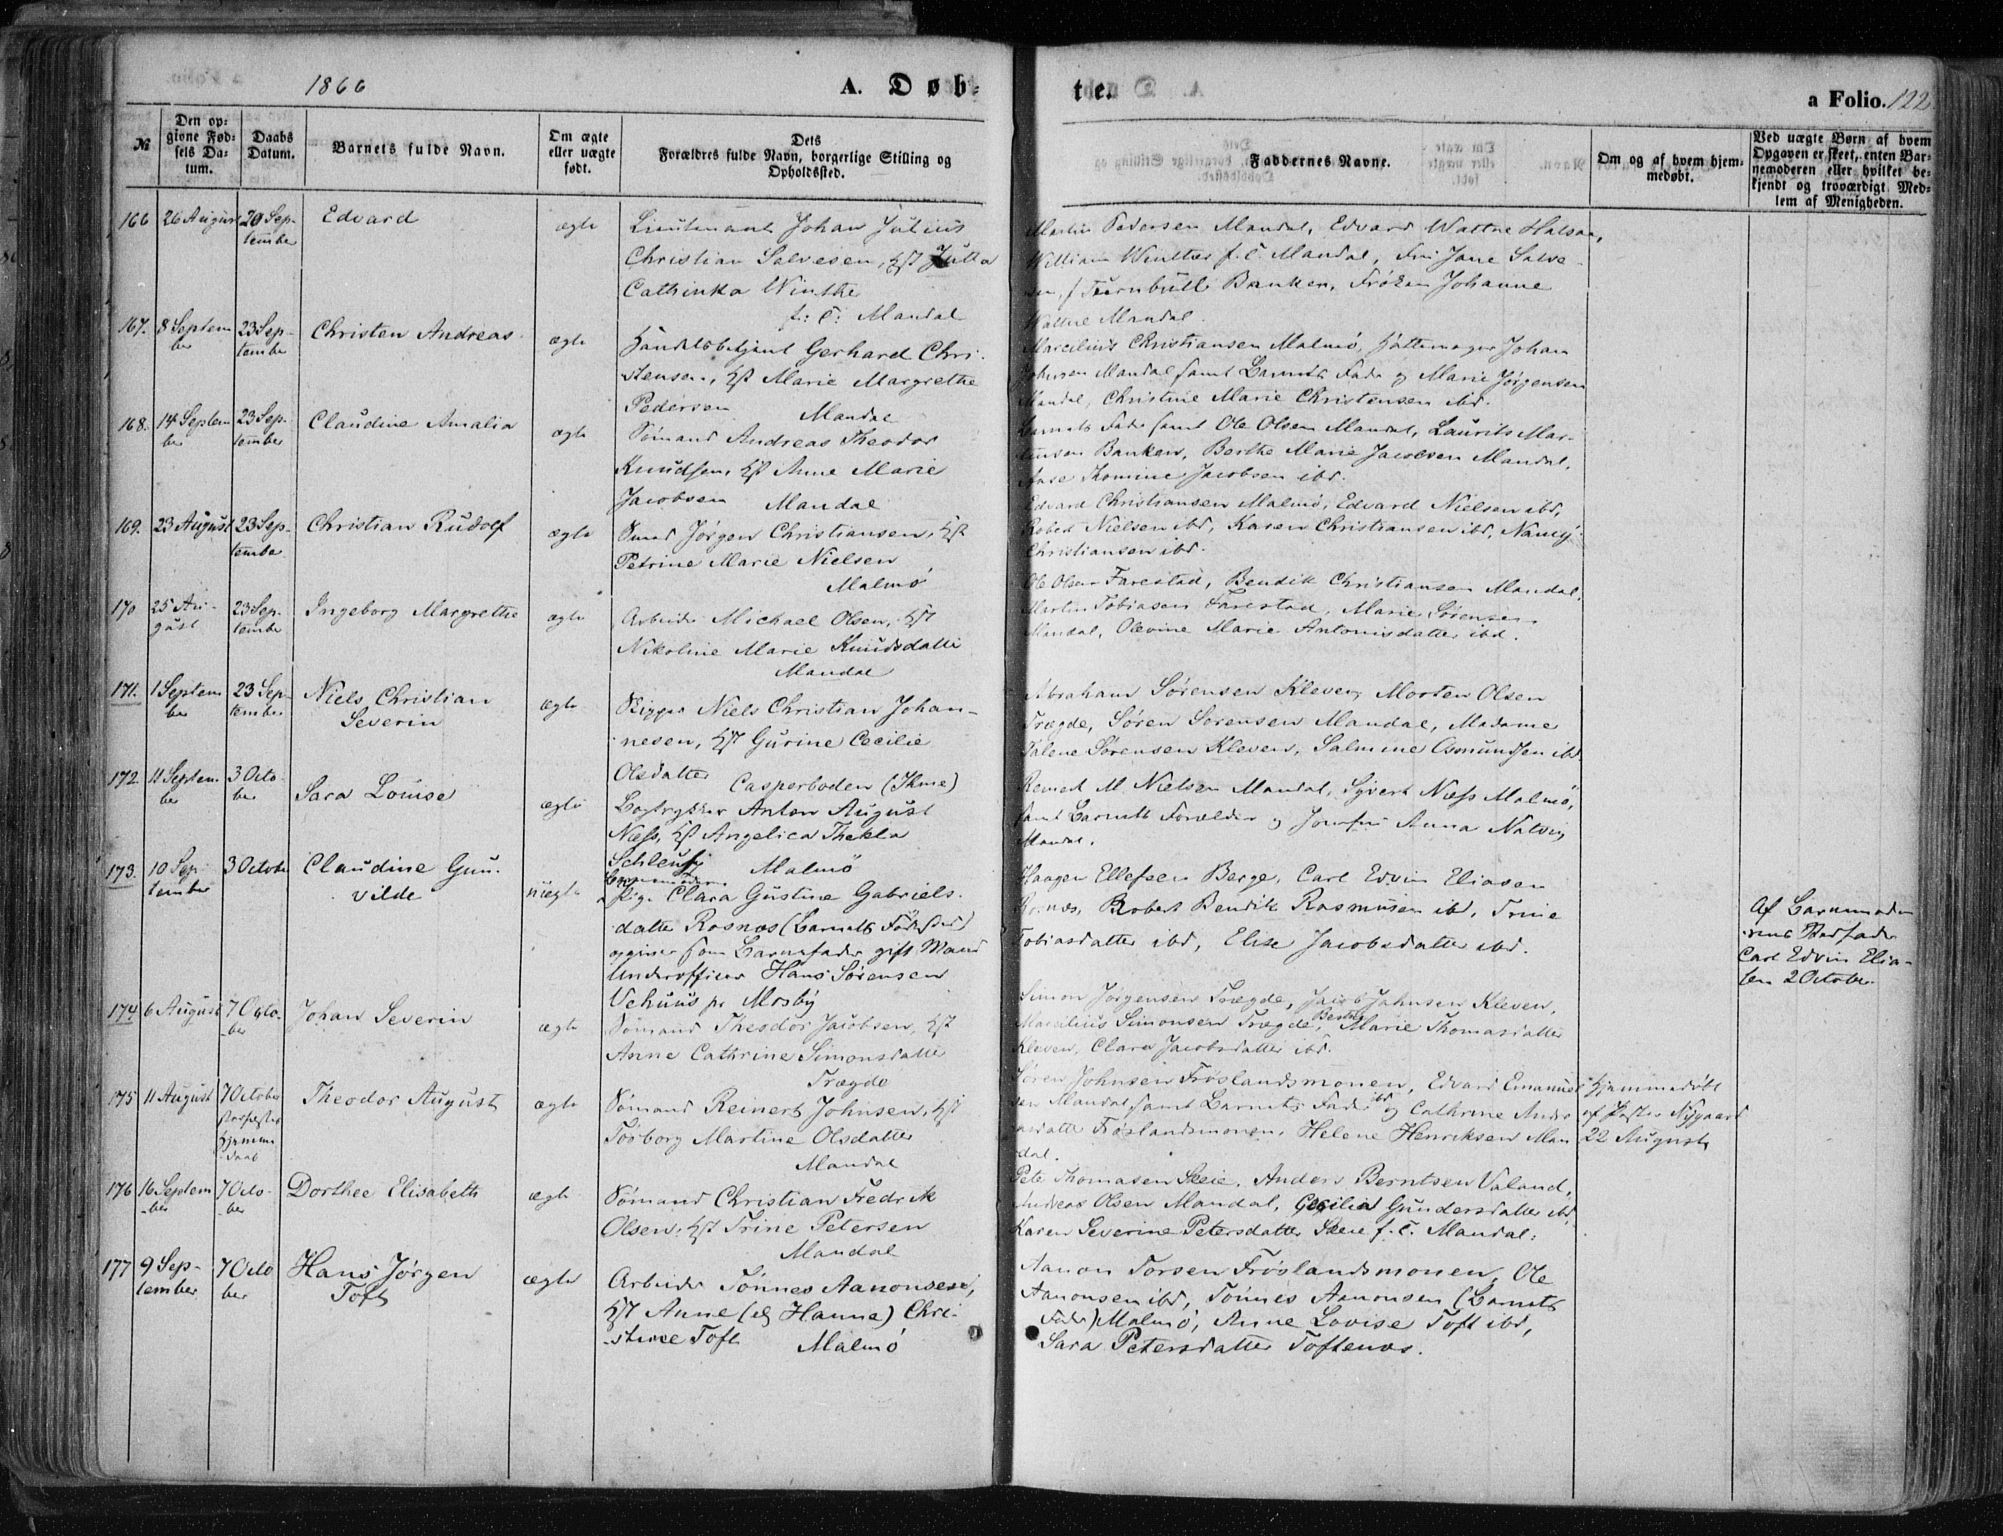 1866
A. Døb-
te.
a Folio. 122
№
Den op-
givne Fød-
sels Da-
tum.
Daabs
Datum.
Barnets fulde Navn.
Om ægte
eller uægte
født.
Dets
Forældres fulde Navn, borgerlige Stilling og
Opholdssted.
Faddernes Navne.
Om og af hvem hjem-
medøbt.
Ved uægte Børn af hvem
Opgaven er skeet, enten Bar-
nemoderen eller hvilket be-
kjendt og troværdigt Med-
lem af Menigheden.
166
26 August
20 Sep-
tember
Edvard
ægte
Lieutenant Johan Julius
Christian Salvesen, Hst Jutta
Cathinka Winther
f: T: Mandal
Martin Pedersen Mandal, Edvard Wattne Halsaa,
William Winther f. T. Mandal, Fru Jane Salve-
sen, f Turnbull Banken, Frøken Johanne
Wattne Mandal.
167.
8 Septem
ber
23 Sep-
tember
Christen Andreas
ægte
Handelsbetjent Gerhard Chri-
stensen, Hst Marie Margrethe
Pedersen Mandal
Marcilius Christiansen Malmö, Hattemager Johan
Johnsen Mandal samt Barnets Fader og Marie Jørgensen
Mandal, Christine Marie Christensen ibd.
168.
14 Septem
ber
23 Sep-
tember
Claudine Amalia
ægte
Sömand Andreas Theodor
Knudsen, Hst Anne Marie
Jacobsen Mandal
Barnets Fader samt Ole Olsen Mandal, Laurits Mar-
tinsen Banken, Berthe Marie Jacobsen Mandal,
Aase Thomine Jacobsen ibd.
169.
23 August
23 Sep-
tember
Christian Rudolf
ægte
Smed Jørgen Christiansen, Hst
Petrine Marie Nielsen
Malmö
Edvard Christiansen Malmö, Edvard Nielsen ibd,
Robert Nielsen ibd, Karen Christiansen ibd, Nancy
Christiansen ibd.
170
25 Au-
gust
23 Sep-
tember
Ingeborg Margrethe
ægte
Arbeider Michael Olsen, Hst
Nikoline Marie Knudsdatter
Mandal
Ole Olsen Farestad, Bendik Christiansen Mandal,
Martin Tobiasen Farestad, Marie Sørensen
Mandal, Olevine Marie Antonisdatter ibd.
171.
1 Septem
ber
23 Sep-
tember
Niels Christian
Severin
ægte
Skipper Niels Christian Johan-
nesen, Hst Gurine Cecilie
Olsdatter Casperboden (Ihme)
Abraham Sørensen Kleven, Morten Olsen
Trægde, Søren Sørensen Mandal, Madame
Malene Sørensen Kleven, Salmine Osmundsen ibd.
172
11 Septem
ber
3 Octo-
ber
Sara Louise
ægte
Bogtrykker Anton August
Næss, Hst Angelica Thekla
Malmö
M. Nielsen Mandal, Sivert Næss Malmö,
samt Barnets Forælder og Jomfru Anna
Mandal.
173.
10 Sep-
tember
3 October
Claudine Gun-
vilde
uægte
Barnemoder
Pige Clara Gustine Gabriels-
datter Rosnæs (Barnets Fødested)
opgiver som Barnefader gift Mand
Underofficer Hans Sørensen
Vehuus pr Mosby
Haagen Ellefsen Berge, Carl Edvin Eliasen
Rosnæs, Robert Bendik Rasmusen ibd, Trine
Tobiasdatter ibd, Elise Jacobsdatter ibd.
Af Barnemode-
rens Stedfader
Carl Edvin Elia-
sen 2 October
174
6 August
7 Octo-
ber
Johan Severin
ægte
Sömand Theodor Jacobsen, Hst
Anne Cathrine Simonsdatter
Trægde
Simon Jørgensen Trægde, Jacob Jahnsen Kleven,
Marcilius Simonsen Trægde, Berthe Marie Thomasdatter
Kleven, Clara Jacobsdatter ibd.
175
11 August
7 October
Hjemme
daab
Theodor August
ægte
Sömand Reinert Johnsen, Hst
Torborg Martine Olsdatter
Mandal
Søren Johnsen Frøslandsmonen, Edvard Emanuel-
sen Mandal samt Barnets Fader ibd og Cathrine Andre-
asdatter Frøslandsmonen, Helene Henriksen Man-
dal.
Hjemmedøbt
af Pastor Nygaard
22 August
176
16 Septem
ber
7 Octo-
ber
Dorthee Elisabeth
ægte
Sömand Christian Fredrik
Olsen, Hst Trine Petersen
Mandal
Peter Thomasen Skeie, Anders Berntsen Valand,
Andreas Olsen Mandal, Cecilia Gundersdatter ibd,
Karen Severine Petersdatter Skeie f. T. Mandal:
177
9 Sep-
tember
7 Octo
ber
Hans Jørgen
Toft
ægte
Arbeider Tönnes Aanonsen,
Hst Anne (og Hanne) Chri-
stine Toft Malmö
Aanon Torsen Frøslandsmonen, Ole
Aanonsen ibd, Tönnes Aanonsen (Barnets
Fader) Malmö, Anne Lovise Toft ibd,
Sara Petersdatter Toftenæs.